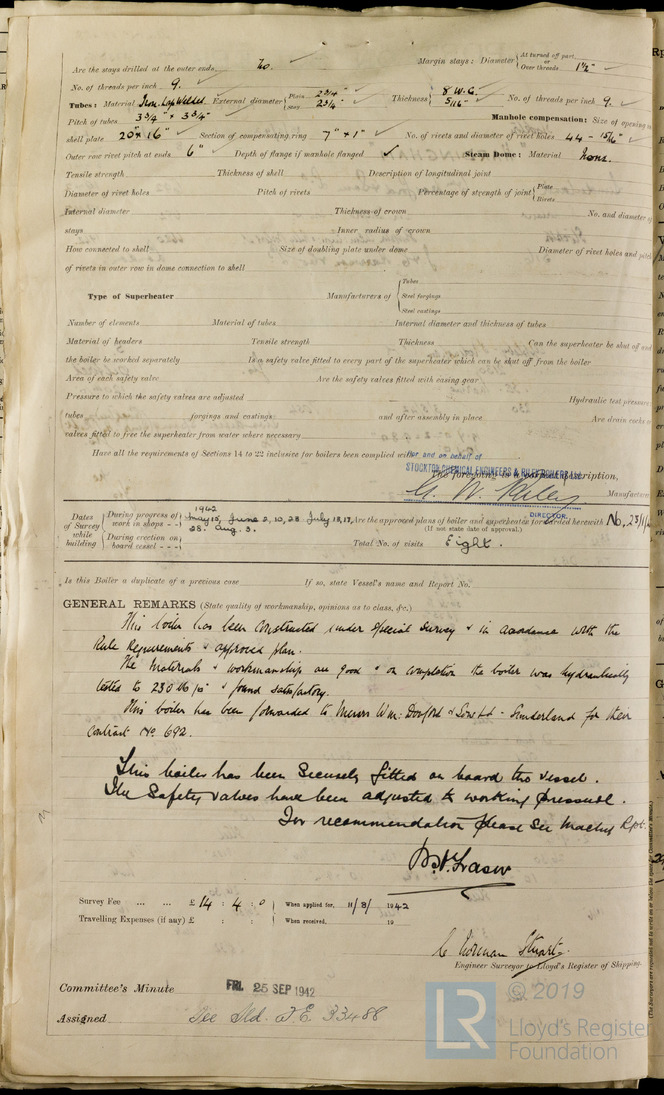 Are the stays drilled at the outer ends No. Margin stays: Diameter At turned off part or Over threads 1½"
No. of threads per inch 9.
Tubes: Material Iron Lap Welded External diameter Plain 2¾" Stay 2¾" Thickness 8 W.G. 5/16" No. of threads per inch 9.
Pitch of tubes 3¾" × 3¾" Manhole compensation: Size of opening in
shell plate 20" × 16" Section of compensating ring 7" × 1" No. of rivets and diameter of rivet holes 44 - 15/16"
Outer row rivet pitch at ends 6" Depth of flange if manhole flanged Steam Dome: Material None.
Tensile strength Thickness of shell Description of longitudinal joint
Diameter of rivet holes Pitch of rivets Percentage of strength of joint Plate Rivets
Internal diameter Thickness of crown No. and diameter of
stays Inner radius of crown
How connected to shell Size of doubling plate under dome Diameter of rivet holes and pitch
of rivets in outer row in dome connection to shell
Type of Superheater Manufacturers of Tubes Steel forgings Steel castings
Number of elements Material of tubes Internal diameter and thickness of tubes
Material of headers Tensile strength Thickness Can the superheater be shut off and
the boiler be worked separately Is a safety valve fitted to every part of the superheater which can be shut off from the boiler
Area of each safety valve Are the safety valves fitted with easing gear
Pressure to which the safety valves are adjusted Hydraulic test pressure
tubes forgings and castings and after assembly in place Are drain cocks or
valves fitted to free the superheater from water where necessary
Have all the requirements of Sections 14 to 22 inclusive for boilers been complied with
For and on behalf of
STOCKTON CHEMICAL ENGINEERS & RILEY BOILERS LTD.
The foregoing is a correct description,
Manufacturer
DIRECTOR.
Dates of Survey while building During progress of work in shops 1942 May 15, June 2, 10, 23 July 13, 17, 28. Aug. 3. Are the approved plans of boiler and superheater forwarded herewith No,
(If not state date of approval.)
During erection on board vessel Total No. of visits Eight.
Is this Boiler a duplicate of a previous case If so, state Vessel's name and Report No.
GENERAL REMARKS (State quality of workmanship, opinions as to class, &c.)
This boiler has been constructed under Special Survey & in accordance with the
Rule Requirements & approved plan.
The materials & workmanship are good & on completion the boiler was hydraulically
tested to 230 lb/□" & found satisfactory.
This boiler has been forwarded to Messrs Wm: Doxford & Sons Ltd - Sunderland for their
Contract No 692.
This boiler has been securely fitted on board the vessel.
The safety valves have been adjusted to working pressure.
For recommendation please see Machy Rpt.
Fraser
Survey Fee ... ... £ 14 : 4 : 0 When applied for, 11/8/ 1942
Travelling Expenses (if any) £ : : When received, 19
C Norman Stuart.
Engineer Surveyor to Lloyd's Register of Shipping.
Committee's Minute FRI. 25 SEP 1942
Assigned See Sld. F.E. 33488
© 2019
LR
Lloyd's Register
Foundation